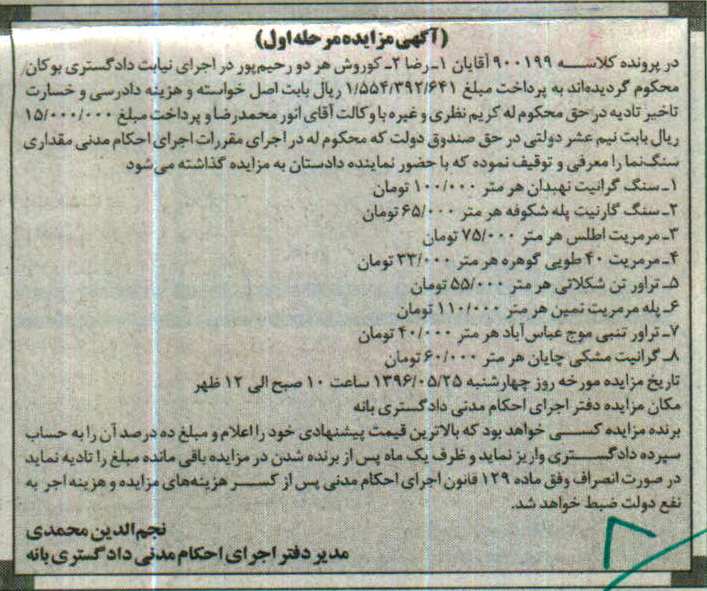 (آگهی مزایده مرحله اول)
در پرونده کلاسه ۹۰۰۱۹۹ آقایان ۱ـ رضا ۲ـ کوروش هر دو رحیم‌پور در اجرای نیابت دادگستری بوکان
محکوم گردیده‌اند به پرداخت مبلغ ۱/۵۵۴/۳۹۲/۶۴۱ ریال بابت اصل خواسته و هزینه دادرسی و خسارت
تاخیر تادیه در حق محکوم له کریم نظری و غیره با وکالت آقای انور محمدرضا و پرداخت مبلغ ۱۵/۰۰۰/۰۰۰
ریال بابت نیم عشر دولتی در حق صندوق دولت که محکوم له در اجرای مقررات اجرای احکام مدنی مقداری
سنگ‌نما را معرفی و توقیف نموده که با حضور نماینده دادستان به مزایده گذاشته می‌شود
۱ـ سنگ گرانیت نهبدان هر متر ۱۰۰/۰۰۰ تومان
۲ـ سنگ گارنیت پله شکوفه هر متر ۶۵/۰۰۰ تومان
۳ـ مرمریت اطلس هر متر ۷۵/۰۰۰ تومان
۴ـ مرمریت ۴۰ طوبی گوهره هر متر ۳۳/۰۰۰ تومان
۵ـ تراور تن شکلاتی هر متر ۵۵/۰۰۰ تومان
۶ـ پله مرمریت ثمین هر متر ۱۱۰/۰۰۰ تومان
۷ـ تراور تنبی موج عباس‌آباد هر متر ۴۰/۰۰۰ تومان
۸ـ گرانیت مشکی چایان هر متر ۶۰/۰۰۰ تومان
تاریخ مزایده مورخه روز چهارشنبه ۱۳۹۶/۰۵/۲۵ ساعت ۱۰ صبح الی ۱۲ ظهر
مکان مزایده دفتر اجرای احکام مدنی دادگستری بانه
برنده مزایده کسی خواهد بود که بالاترین قیمت پیشنهادی خود را اعلام و مبلغ ده درصد آن را به حساب
سپرده دادگستری واریز نماید و ظرف یک ماه پس از برنده شدن در مزایده باقی مانده مبلغ را تادیه نماید
در صورت انصراف وفق ماده ۱۲۹ قانون اجرای احکام مدنی پس از کسر هزینه‌های مزایده و هزینه اجر به
نفع دولت ضبط خواهد شد.
نجم‌الدین محمدی
مدیر دفتر اجرای احکام مدنی دادگستری بانه